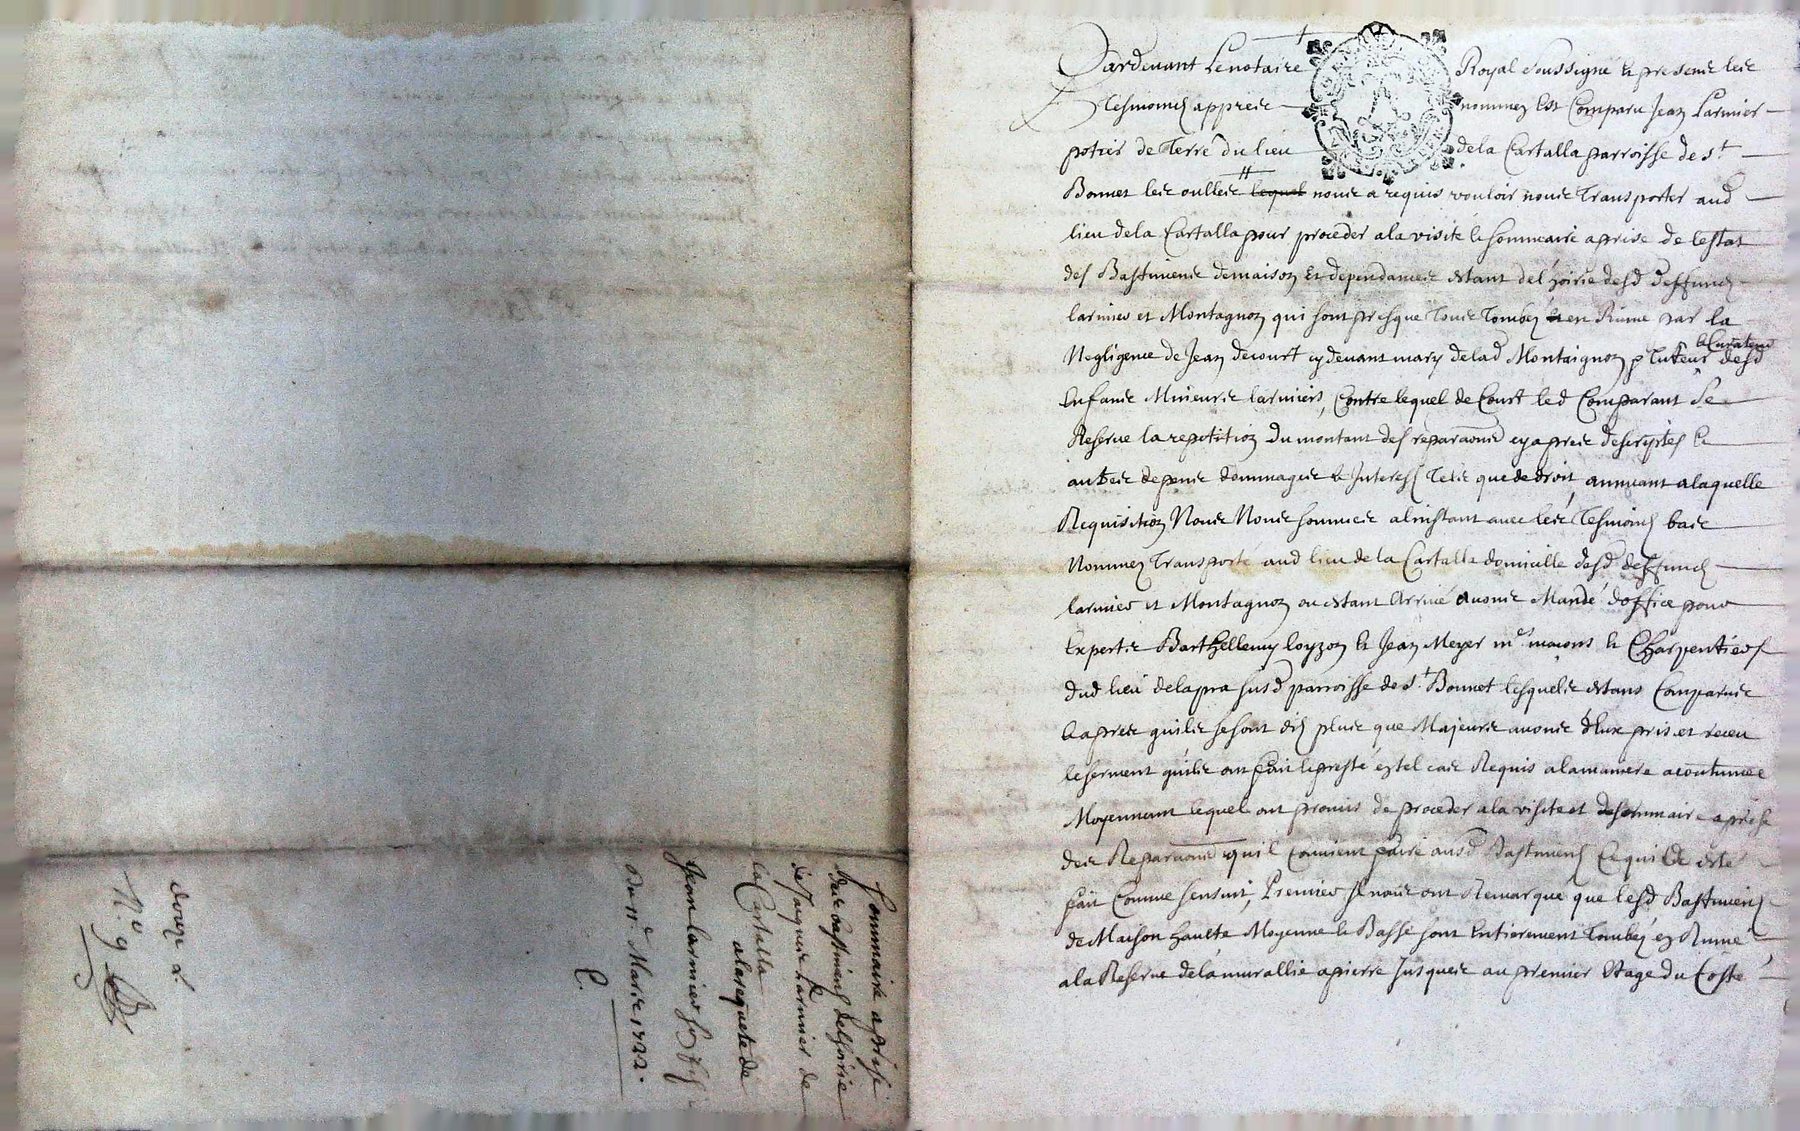 Pardevant Le notaire Royal soussigné & presens les
tesmoins appres nommez Est Comparu Jean Larmier
potier de Terre du lieu de la Cartalla parroisse de st
Bonnet les oulles lequel nous a requis vouloir nous Transporter aud
lieu de la Cartalla pour proceder a la visite & sommaire aprise de lestat
des Bastimens de maison Et dependances estant de lhoirie desd deffuncs
larmier et Montagnon qui sont presque tous tombez en Ruine par la
Negligence de Jean decourt cy devant mary de lad Montaignon & tuteur & Curateur desd
Enfans Mineurs larmiers, Contre lequel de Court led Comparant Se
Reserve la repetition du montant des reparaons cy apres descriptes &
autres depens dommages & Interests Tels que de droit, annuant a laquelle
Requisition Nous Nous sommes a linstant avec les Tesmoins bas
Nommez Transporté aud lieu de la Cartalla domicille desd deffuncs
larmier et Montagnon ou estant Arrivé avons Mandé doffice pour
Experts Barthellemy loyzon & Jean Meyer me maçons & Charpentiers
dud lieu de la pra susd parroisse de st Bonnet lesquels estans Comparus
& apres quils se sont dis plus que Majeurs avons deux pris et receu
le serment quils ont fait & presté en tel cas Requis a la maniere acoutumée
Moyennant lequel ont promis de proceder a la visite et de sommaire aprise
des Reparaons quil Convient faire ausd Bastimens Ce qui a esté
fait Comme sensuit, Premier Il nous ont Remarqué que lesd Bastimens
de Maison haulte Moyenne & Basse sont Entierement Tombez en Ruine
a la Reserve de la murallie a pierre Jusques au premier Etage du Costé
Sommaire aprise
des bastimens de lhoirie
de Jaques Larmier de
la Cartalla
a la requete de
Jean larmier son fils
du 11e Mars 1722.
C
douze
N.o 9